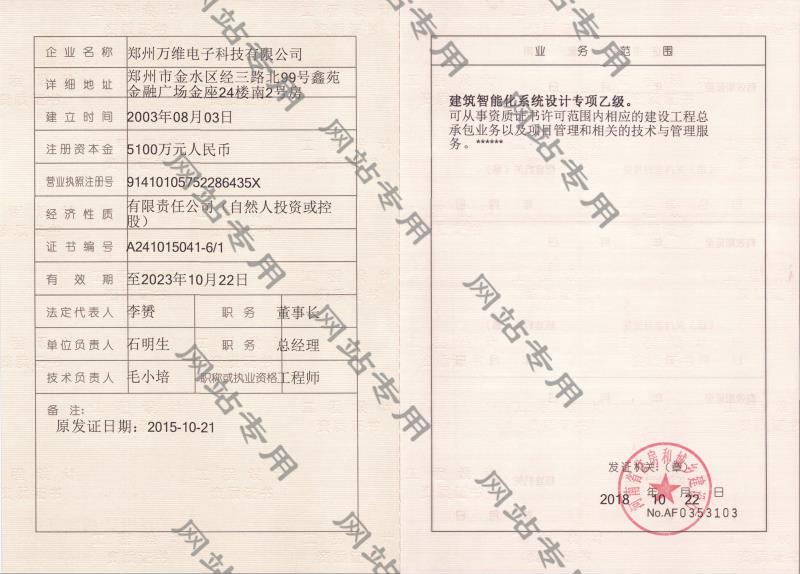 企业名称 郑州万维电子科技有限公司
详细地址 郑州市金水区经三路北99号鑫苑
金融广场金座24楼南2号房
建立时间 2003年08月03日
注册资本金 5100万元人民币
营业执照注册号 91410105752286435X
经济性质 有限责任公司（自然人投资或控
股）
证书编号 A241015041-6/1
有效期 至2023年10月22日
法定代表人 李赟 职务 董事长
单位负责人 石明生 职务 总经理
技术负责人 毛小培 职称或执业资格 工程师
备注:
原发证日期：2015-10-21
业务范围
建筑智能化系统设计专项乙级。
可从事资质证书许可范围内相应的建设工程总
承包业务以及项目管理和相关的技术与管理服
务。******
发证机关:（章）
2018年10月22日
No.AF0353103
河南省住房和城乡建设
网站专用
网站专用
网站专用
网站专用
网站专用
网站专用
网站专用
网站专用
网站专用
网站专用
网站专用
网站专用